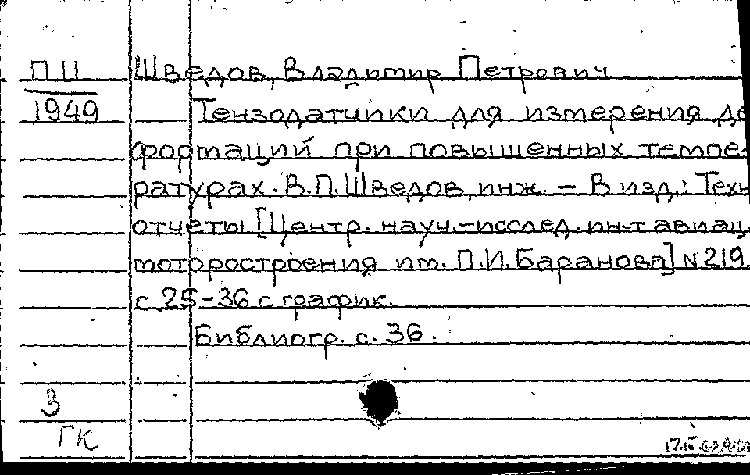 П II
1949
Шведов, Владимир Петрович
Тензодатчики для измерения де
формаций при повышенных темпе-
ратурах. В.П.Шведов, инж. – В изд.: Техн
отчеты [Центр. науч.-исслед. ин-т авиац.
моторостроения им. П.И.Баранова] №219
с. 25-36 с график.
Библиогр. с. 36.
3
ГК